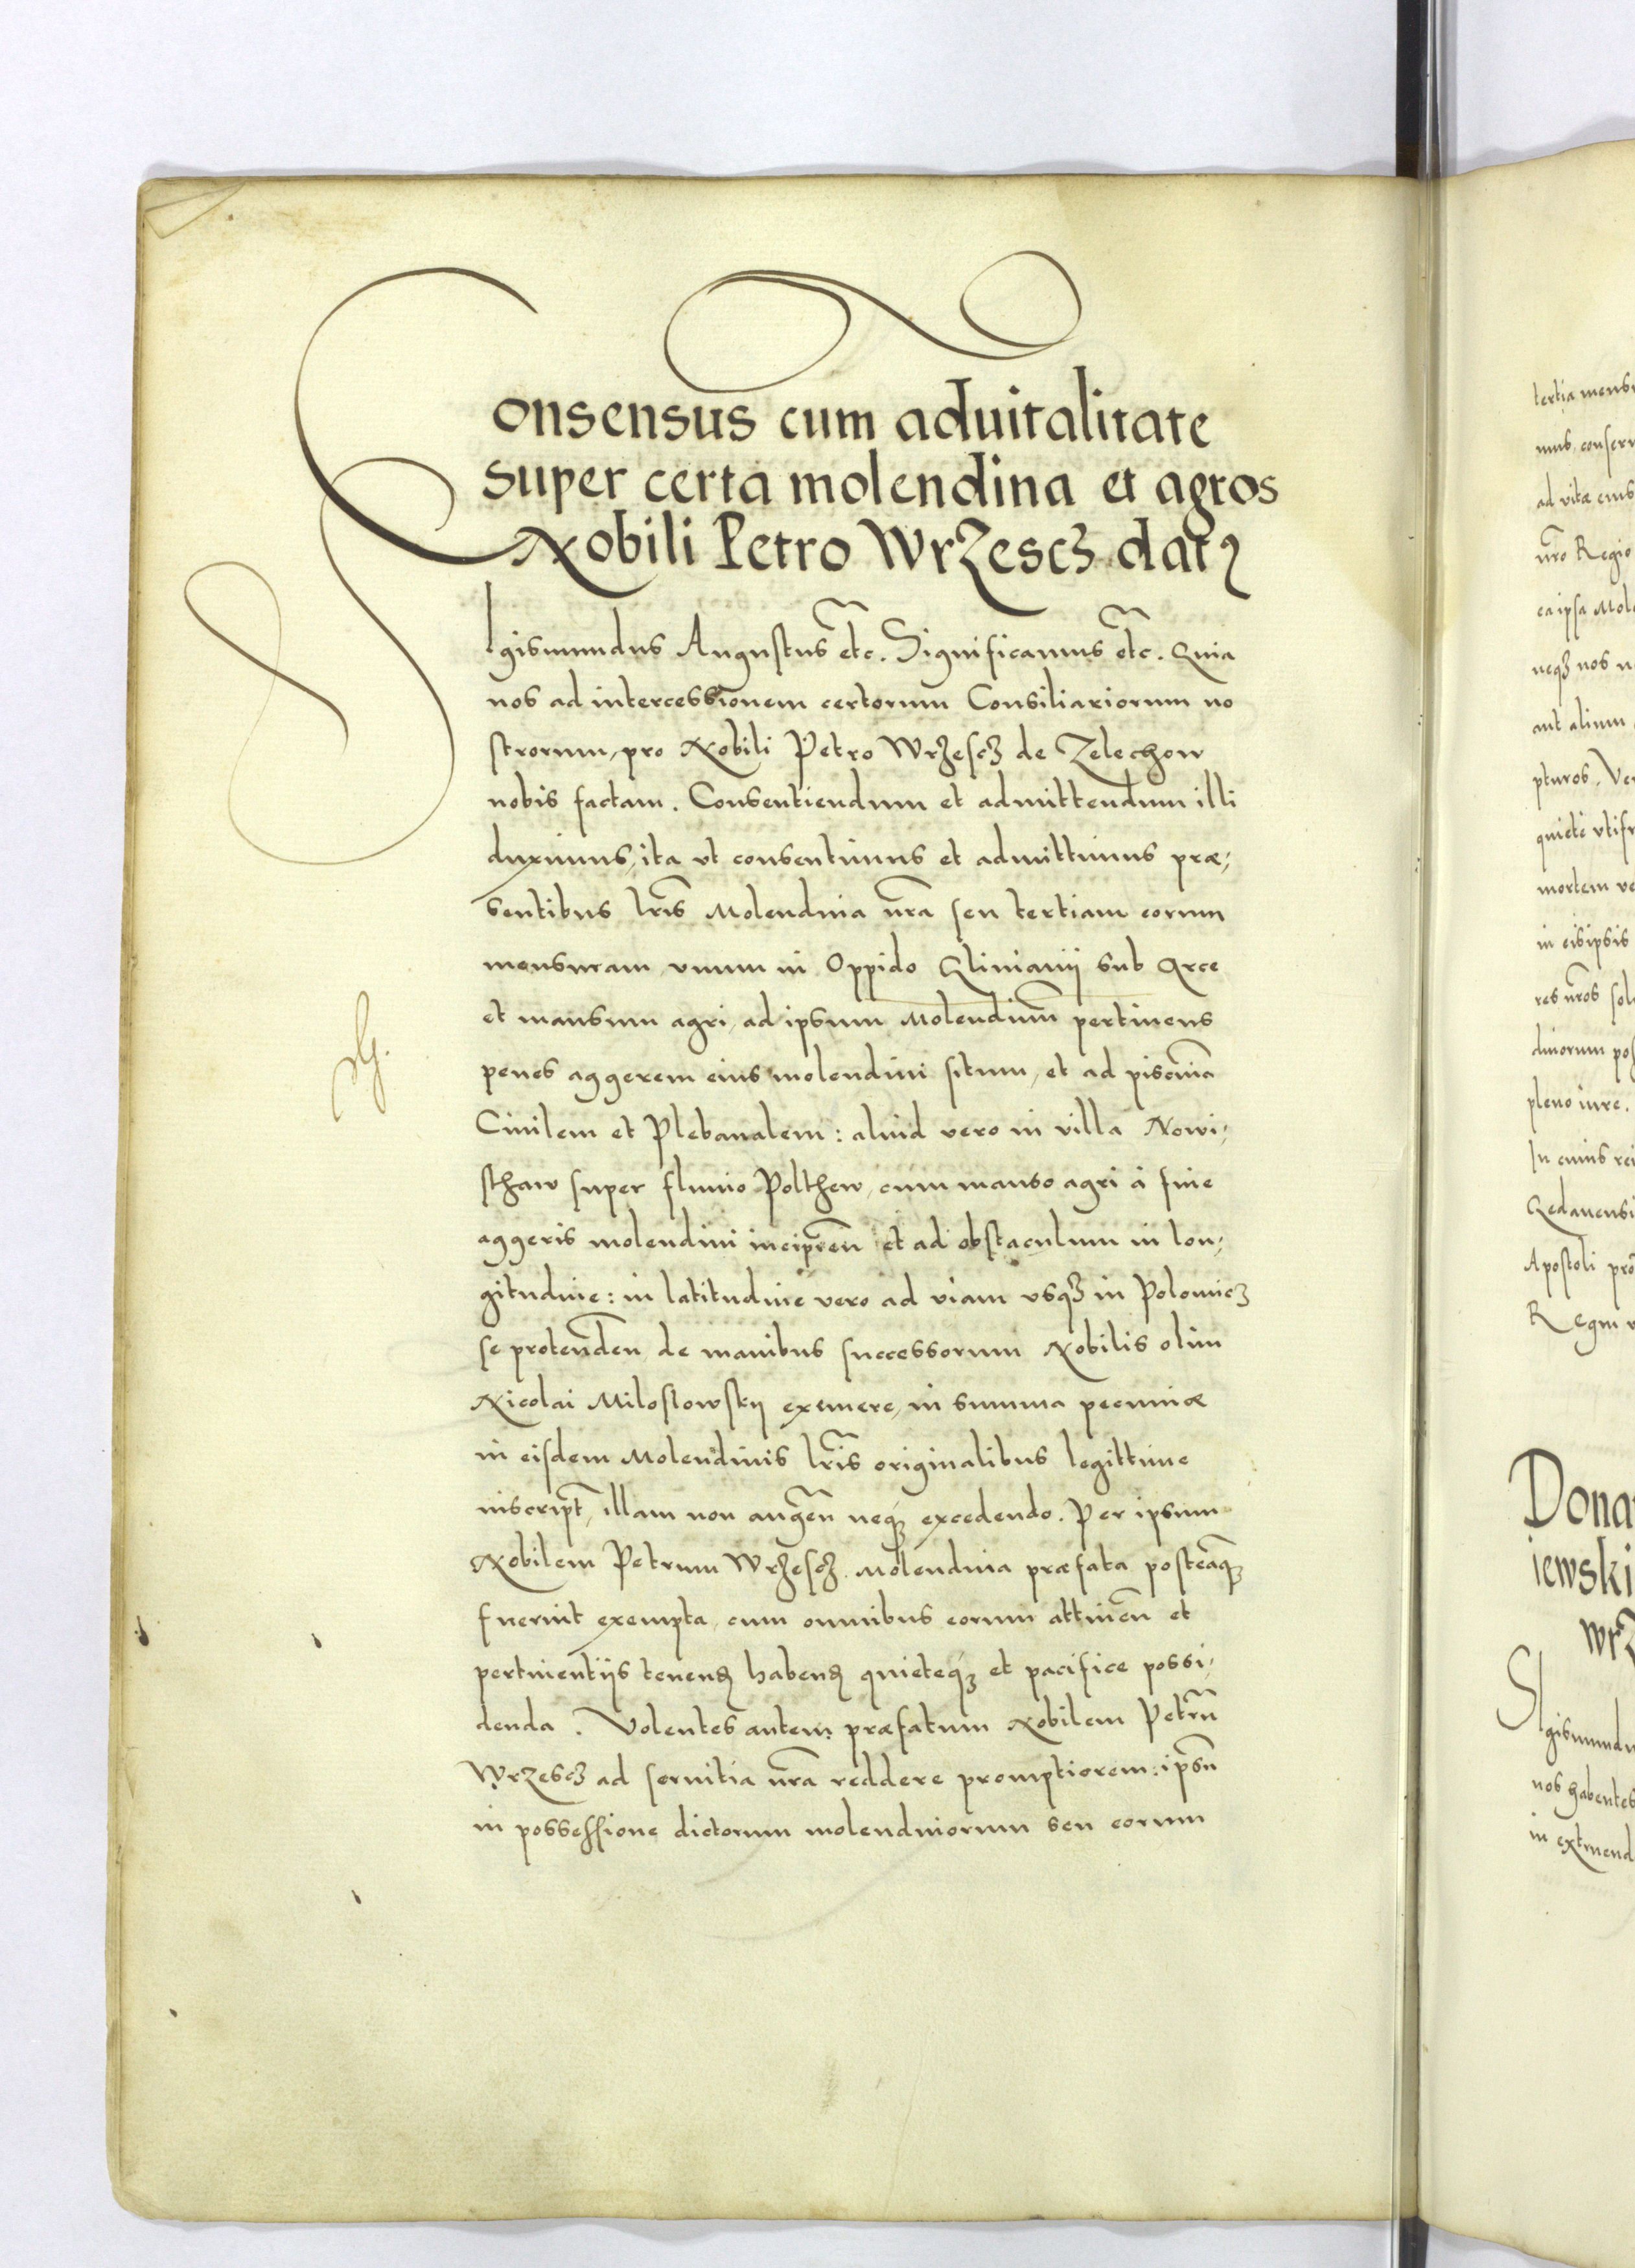 Consensus cum aduitalitate
super certa molendina et agros
Nobili Petro Wrzescz datꝰ
SIgismundus Augustus etc. Significamus etc. Quia
nos ad intercessionem certorum Consiliariorum no
strorum, pro Nobili Petro Wrzescz de Zelechow
nobis factam. Consentiendum et admittendum illi
duximus, ita vt consentimus et admittimus præ,
sentibus lr̃is Molendina nr̃a seu tertiam eorum
mensuram, vnum in Oppido Glinianij sub Arce
et mansum agri, ad ipsum Molendinũ pertinens
penes aggerem eius molendini situm, et ad piscinã
Ciuilem et Plebanalem: aliud vero in villa Nowi,
sthaw super fluuio Polthew, cum manso agri á fine
aggeris molendini incipien̄ et ad obstaculum in lon,
gitudine: in latitudine vero ad viam vsqꝫ in Polonicz
se protenden̄ de manibus successorum Nobilis olim
Nicolai Miloslowskij eximere, in summa pecuniæ
in eisdem Molendinis lr̃is originalibus legittime
inscript̄, illam non augen̄ neqꝫ excedendo. Per ipsum
Nobilem Petrum Wrzescz Molendina præfata posteaqꝫ
fuerint exempta, cum omnibus eorum attinen̄ et
pertinentijs tenend̄ habend̄ quieteqꝫ et pacifice possi,
denda. Volentes autem præfatum Nobilem Petrũ
Wrzescz ad seruitia nr̃a reddere promptiorem: ipsũ
in possessione dictorum molendinorum seu eorum
tertia mens
mus, conser
ad vitæ eius
nr̃o Regio
ea ipsa Mol
neqꝫ nos n
aut alium
pturos. Ve
quiete vtifr
mortem ve
in eisipsis
res nr̃os so
dinorum pos
pleno iure.
In cuius rei
Gedanensi
Apostoli pro
Regni
Dona
iewski
wrz
SIgismundu
nos habentes
in extruend